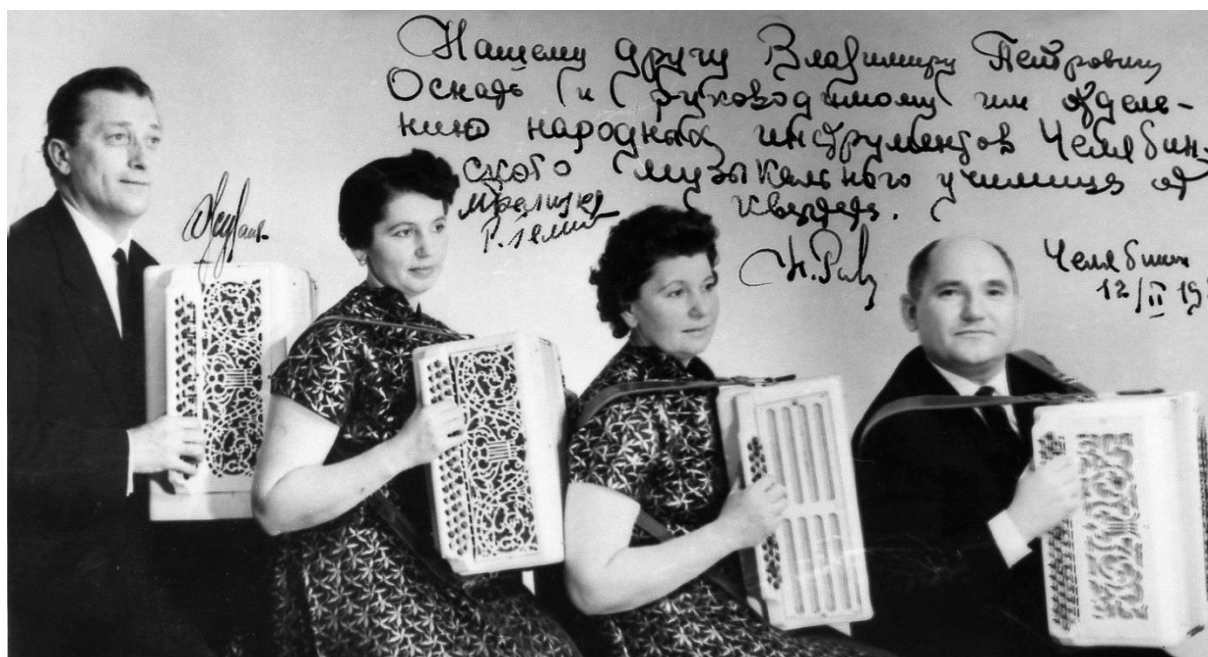 Нашему другу Владимиру Петровичу
Оскаде и руководимому им отделе-
нию народных инструментов Челябин-
ского музыкального училища от
квартета.
Н. Риз
Челябинск
12/II 19